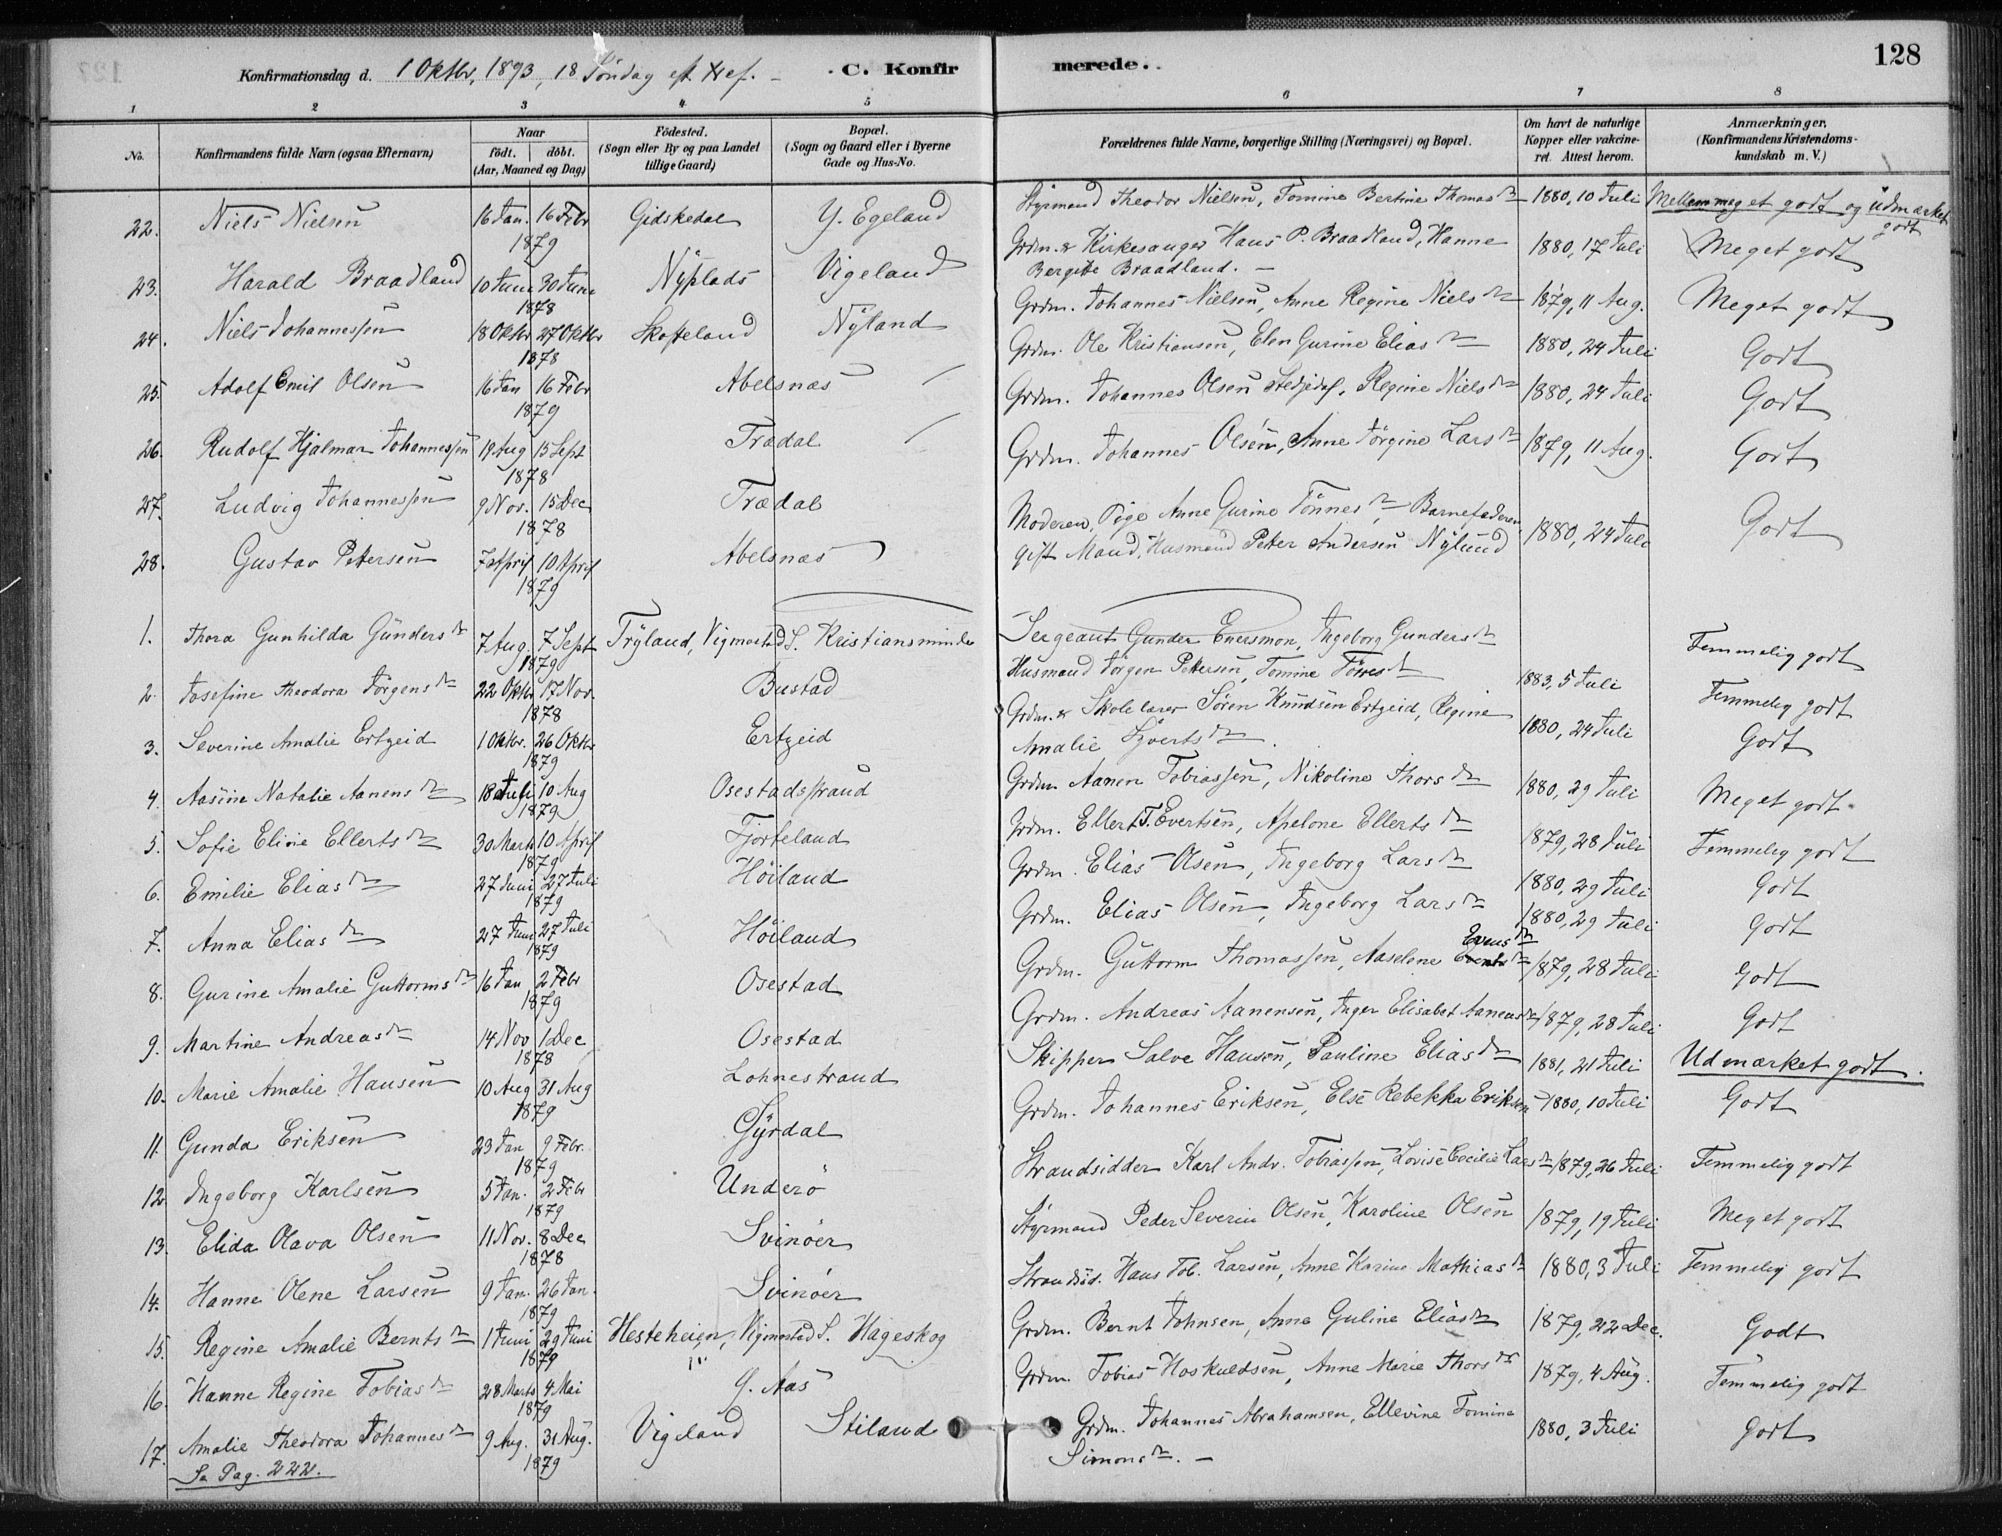 128
Konfirmationsdag d. 1 Oktbr. 1893, 18 Söndag eft Tref. — C. Konfirmerede.
1 2 3 4 5 6 7 8
No. Konfirmandens fulde Navn (ogsaa Efternavn) Naar födt. döbt. (Aar, Maaned og Dag) Födested. (Sogn eller By og paa Landet tillige Gaard) Bopæl. (Sogn og Gaard eller i Byerne Gade og Hus-No. Forældrenes fulde Navne, borgerlige Stilling (Næringsvei) og Bopæl. Om havt de naturlige Kopper eller vakcineret. Attest herom. Anmærkninger. (Konfirmandens Kristendomskundskab m. V.)
22. Niels Nielsen 16 Jan. 16 Febr 1879 Gidskedal Y. Egeland Styrmand Theodor Nielsen, Tomine Bertine Thomasdr 1880, 10 Juli Mellem meget godt og udmærket godt
23. Harald Braadland 10 Juni 30 Juni 1878 Nyplads Vigeland Grdm. & Kirkesanger Hans P. Braadland, Hanne Bergite Braadland. — 1880, 17 Juli Meget godt
24. Niels Johannessen 18 Oktbr 27 Oktbr 1878 Skofteland Nyland Grdm. Johannes Nielsen, Anne Regine Nielsdr 1879, 11 Aug. Meget godt
25. Adolf Emil Olsen 16 Jan 16 Febr 1879 Abelsnæs Grdm. Ole Kristiansen, Elen Gurine Eliasdr 1880, 24 Juli Godt
26. Rudolf Hjalmar Johannessen 19 Aug 15 Sept 1878 Trædal Grdm. Johannes Olsen, Regine Nielsdr 1880, 24 Juli Godt
27. Ludvig Johannessen 9 Nov. 15 Dec 1878 Trædal Grdm. Johannes Olsen, Anne Jörgine Larsdr 1879, 11 Aug. Godt
28. Gustav Petersen 7 April 10 April 1879 Abelsnæs Moderen, Pige Anne Gurine Tönnesdr, Barnefaderen, gift Mand, Husmand Peter Andersen Nylund 1880, 24 Juli Godt
1. Thora Gunhilda Gundersdr 7 Aug. 7 Sept 1879 Tryland, Vigmostad S. Kristiansminde Sergeant Gunder Enersmon, Ingeborg Gundersdr Temmelig godt
2. Josefine Theodora Jörgensdr 22 Oktbr 17 Nov. 1878 Bustad Husmand Jörgen Petersen, Tomine Törresdr 1883, 5 Juli Temmelig godt
3. Severine Amalie Ertzeid 1 Oktbr. 26 Oktbr 1879 Ertzeid Grdm. & Skolelærer Sören Knudsen Ertzeid, Regine Amalie Syvertsdr. 1880, 24 Juli Godt
4. Aasine Natalie Aanensdr 18 Juli 10 Aug 1879 Osestadstrand Grdm. Aanen Tobiassen, Nikoline Thorsdr 1880, 29 Juli Meget godt
5. Sofie Eline Ellertsdr 30 Marts 10 April 1879 Fjorteland Grdm. Ellert T. Evertsen, Apelone Ellertsdr 1879, 28 Juli Temmelig godt
6. Emilie Eliasdr 27 Juni 27 Juli 1879 Höiland Grdm. Elias Olsen, Ingeborg Larsdr 1880, 29 Juli Godt
7. Anna Eliasdr 27 Juni 27 Juli 1879 Höiland Grdm. Elias Olsen, Ingeborg Larsdr 1880, 29 Juli Godt
8. Gurine Amalie Guttormsdr 16 Jan 2 Febr 1879 Osestad Grdm. Guttorm Thomassen, Aaselene 1879, 28 Juli Godt
9. Martine Andreasdr 14 Nov 1 Dec 1878 Osestad Grdm. Andreas Aanensen, Inger Elisabet Aanensdr 1879, 28 Juli Godt
10. Marie Amalie Hansen 10 Aug 31 Aug 1879 Lohnestrand Skipper Salve Hansen, Pauline Eliasdr 1881, 21 Juli Udmærket godt.
11. Gunda Eriksen 23 Jan 9 Febr. 1879 Gyrdal Grdm. Johannes Eriksen, Else Rebekka Eriksen 1880, 10 Juli Godt
12. Ingeborg Karlsen 5 Jan. 2 Febr 1879 Underö Strandsidder Karl Andr. Tobiassen, Lovise Cecilie Larsdr 1879, 26 Juli Temmelig godt
13. Elida Olava Olsen 11 Nov. 8 Dec 1878 Svinöer Styrmand Peder Severin Olsen, Karoline Olsen 1879, 19 Juli Meget godt
14. Hanne Olene Larsen 9 Jan. 26 Jan. 1879 Svinöer Strandsid. Hans Tob. Larsen, Anne Karine Mathiasdr 1880, 3 Juli Temmelig godt
15. Regine Amalie Berntsdr 1 Juni 29 Juni 1879 Hesteheien, Vigmostad S. Hageskog Grdm. Bernt Johnsen, Anne Guline Eliasdr 1879, 22 Dec. Godt
16. Hanne Regine Tobiasdr 28 Marts 4 Mai 1879 G. Aas Grdm. Tobias Hoskuldsen, Anne Marie Thorsdr 1879, 4 Aug. Temmelig godt
17. Amalie Theodora Johannesdr 9 Aug. 31 Aug. 1879 Vigeland Stiland Grdm. Johannes Abrahamsen, Ellevine Tomine Simonsdr. — 1880, 3 Juli Godt
Se Pag. 222.